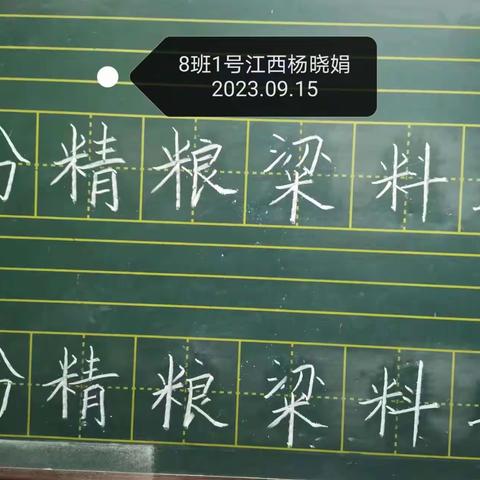 8班1号江西杨晓娟
2023.09.15
精粮粱料
精粮粱料